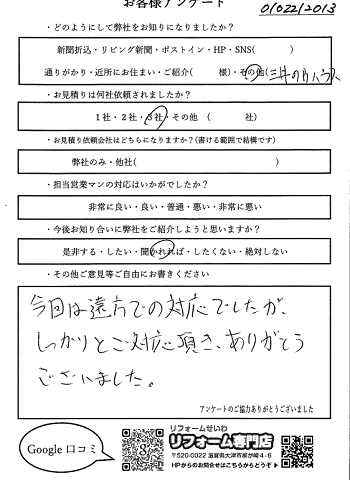 お客様アンケート
0102212013
・どのようにして弊社をお知りになりましたか？
新聞折込・リビング新聞・ポストイン・HP・SNS(　　　)
通りがかり・近所にお住まい・ご紹介(　　　様)・その他(三井のリハウス
・お見積りは何社依頼されましたか？
1社・2社・3社・その他　(　　　社)
・お見積り依頼会社はどちらになりますか？(書ける範囲で結構です)
弊社のみ・他社(　　　)
・担当営業マンの対応はいかがでしたか？
非常に良い・良い・普通・悪い・非常に悪い
・今後お知り合いに弊社をご紹介しようと思いますか？
是非する・したい・聞かれれば・したくない・絶対しない
・その他ご意見等ご自由にお書きください
今回は遠方での対応でしたが、
しっかりとご対応頂き、ありがとう
ございました。
アンケートのご協力ありがとうございました
Google 口コミ
リフォームせいわ
リフォーム専門店
〒520-0022 滋賀県大津市柳が崎4-6
HPからのお問合せはこちらからどうぞ